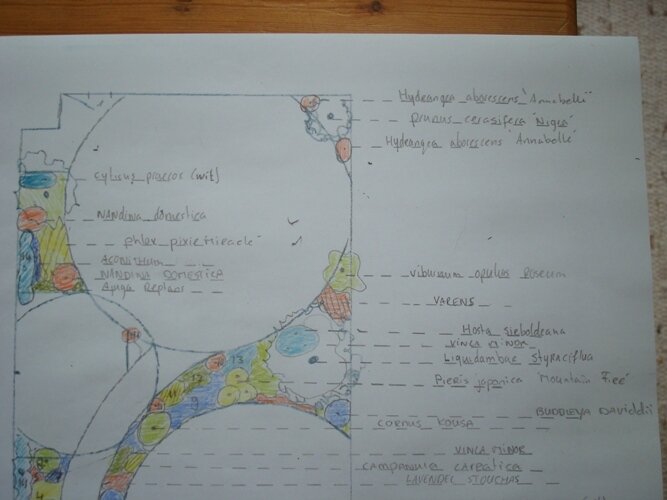 Hydeangea aborescens 'Annabelle'
prunus cerasifera 'Nigra'
Hydeangea aborescens 'Annabelle'
cytisus praecox (wit)
NANDINA domestica
phlox pixie Miracle
ACONITUM
NANDINA DOMESTICA
Ajuga Reptans
viburnum opulus Roseum
VARENS
Hosta sieboldeana
VINCA MINOR
Liquidambar styraciflua
Pieris japonica 'Mountain Fire'
BUDDLEYA DAVIDDII
CORNUS KOUSA
VINCA MINOR
CAMPANULA CARPATICA
LAVENDEL STOUCHAS
13
12
11
9